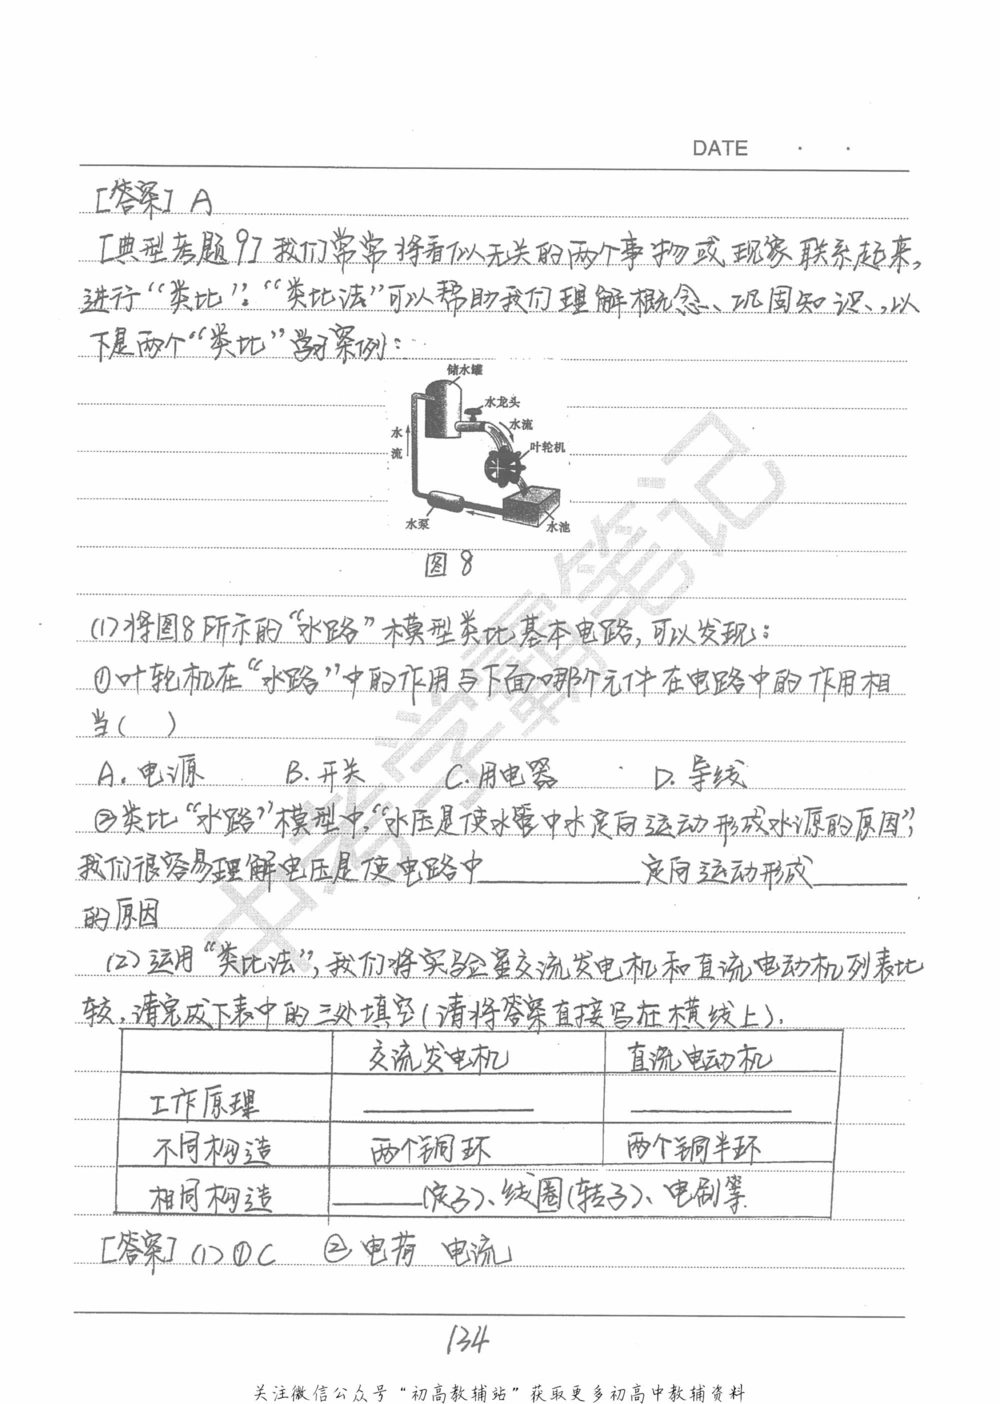 DATE · ·
[答案] A
[典型考题9] 我们常常将看似无关的两个事物或现象联系起来,
进行“类比”。“类比法”可以帮助我们理解概念、巩固知识、,以
下是两个“类比”学习案例:
储水罐
水龙头
水流
水流
叶轮机
水泵
水池
图8
(1)将图8所示的“水路”模型类比基本电路,可以发现:
①叶轮机在“水路”中的作用与下面哪个元件在电路中的作用相
当( )
A. 电源 B. 开关 C. 用电器 D. 导线
②类比“水路”模型中,“水压是使水管中水定向运动形成水源的原因”,
我们很容易理解电压是使电路中________定向运动形成________
的原因
(2)运用“类比法”,我们将实验室交流发电机和直流电动机列表比
较,请完成下表中的三处填空(请将答案直接写在横线上).
交流发电机 直流电动机
工作原理 ________ ________
不同构造 两个铜环 两个铜半环
相同构造 ________(定子)、线圈(转子)、电刷等
[答案] (1)①C ②电荷 电流
134
关注微信公众号“初高教辅站”获取更多初高中教辅资料
中考学霸笔记